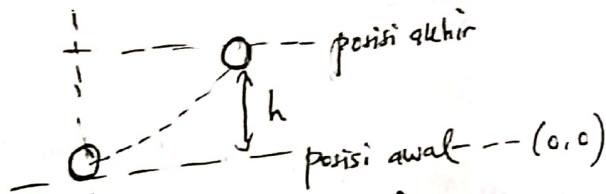 posisi akhir
h
posisi awal --- (0,0)